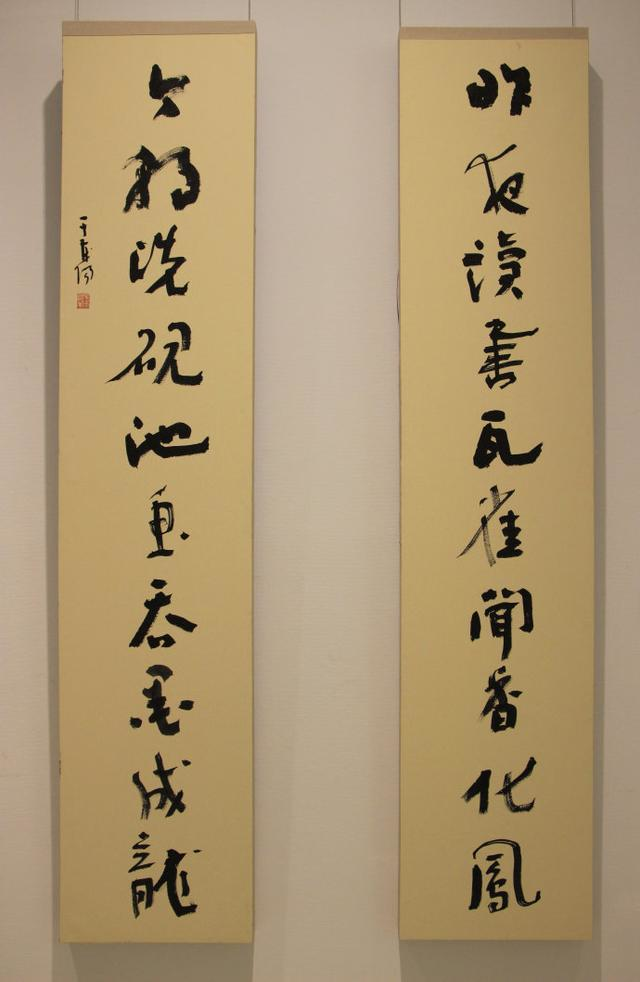 昨夜讀書瓦雀聞香化鳳
今朝洗硯池魚吞墨成龍